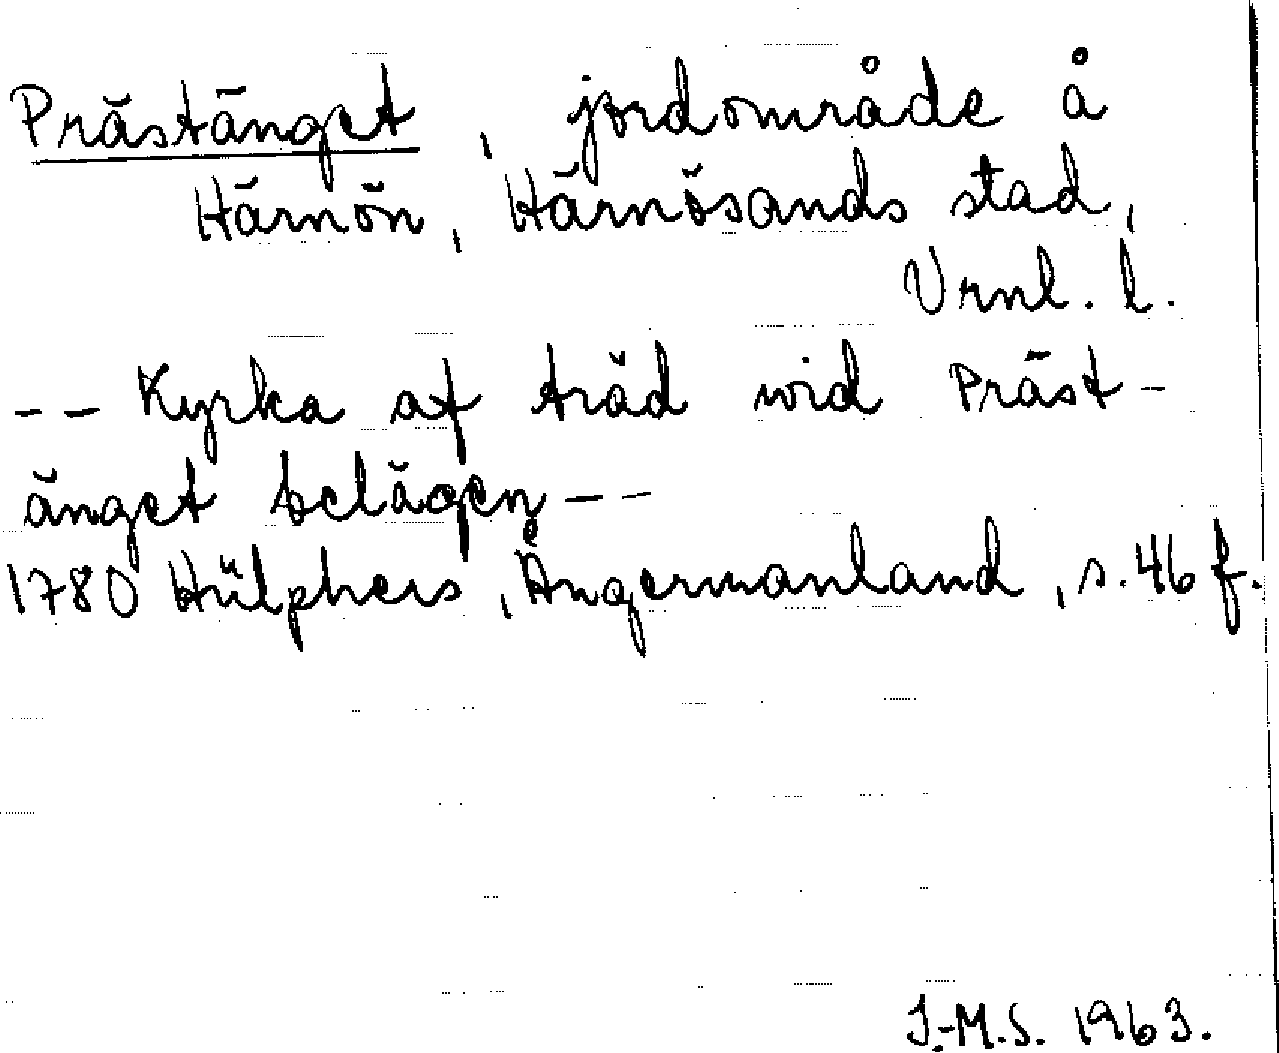 Prästänget, jordområde å
Härnön, Härnösands stad,
Vrnl. l.
-- Kyrka af träd wid Präst-
änget belägen --
1780 Hülphers, Ångermanland, s. 46 f.
J.-M.S. 1963.